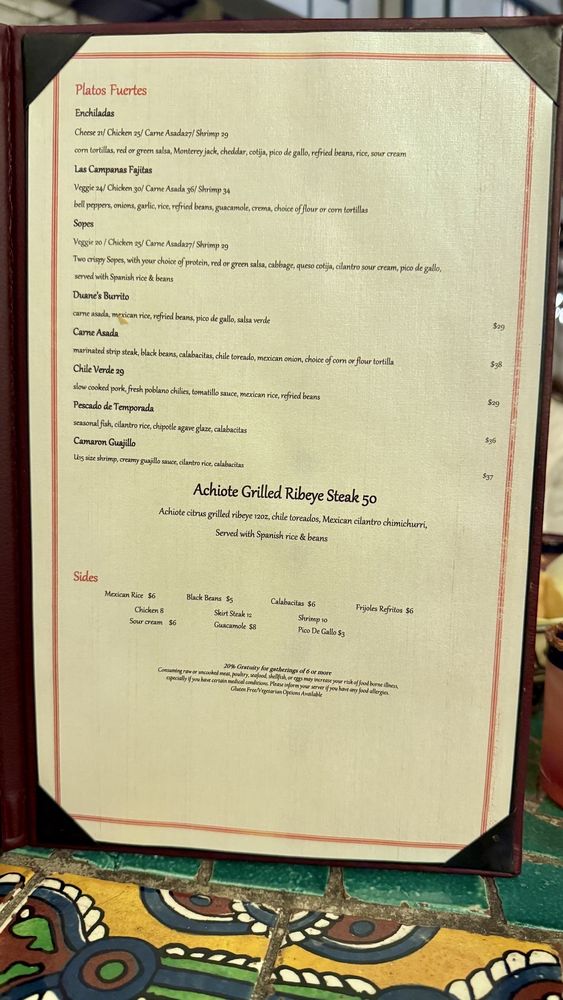 Platos Fuertes
Enchiladas
Cheese 21/ Chicken 25/ Carne Asada27/ Shrimp 29
corn tortillas, red or green salsa, Monterey jack, cheddar, cotija, pico de gallo, refried beans, rice, sour cream
Las Campanas Fajitas
Veggie 24/ Chicken 30/ Carne Asada 36/ Shrimp 34
bell peppers, onions, garlic, rice, refried beans, guacamole, crema, choice of flour or corn tortillas
Sopes
Veggie 20 / Chicken 25/ Carne Asada27/ Shrimp 29
Two crispy Sopes, with your choice of protein, red or green salsa, cabbage, queso cotija, cilantro sour cream, pico de gallo,
served with Spanish rice & beans
Duane's Burrito
carne asada, mexican rice, refried beans, pico de gallo, salsa verde $29
Carne Asada
marinated strip steak, black beans, calabacitas, chile toreado, mexican onion, choice of corn or flour tortilla $38
Chile Verde 29
slow cooked pork, fresh poblano chilies, tomatillo sauce, mexican rice, refried beans $29
Pescado de Temporada
seasonal fish, cilantro rice, chipotle agave glaze, calabacitas $36
Camaron Guajillo
U15 size shrimp, creamy guajillo sauce, cilantro rice, calabacitas $37
Achiote Grilled Ribeye Steak 50
Achiote citrus grilled ribeye 12oz, chile toreados, Mexican cilantro chimichurri,
Served with Spanish rice & beans
Sides
Mexican Rice $6 Black Beans $5 Calabacitas $6 Frijoles Refritos $6
Chicken 8 Skirt Steak 12 Shrimp 10
Sour cream $6 Guacamole $8 Pico De Gallo $3
20% Gratuity for gatherings of 6 or more
Consuming raw or uncooked meat, poultry, seafood, shellfish, or eggs may increase your risk of food borne illness,
especially if you have certain medical conditions. Please inform your server if you have any food allergies.
Gluten Free/Vegetarian Options Available